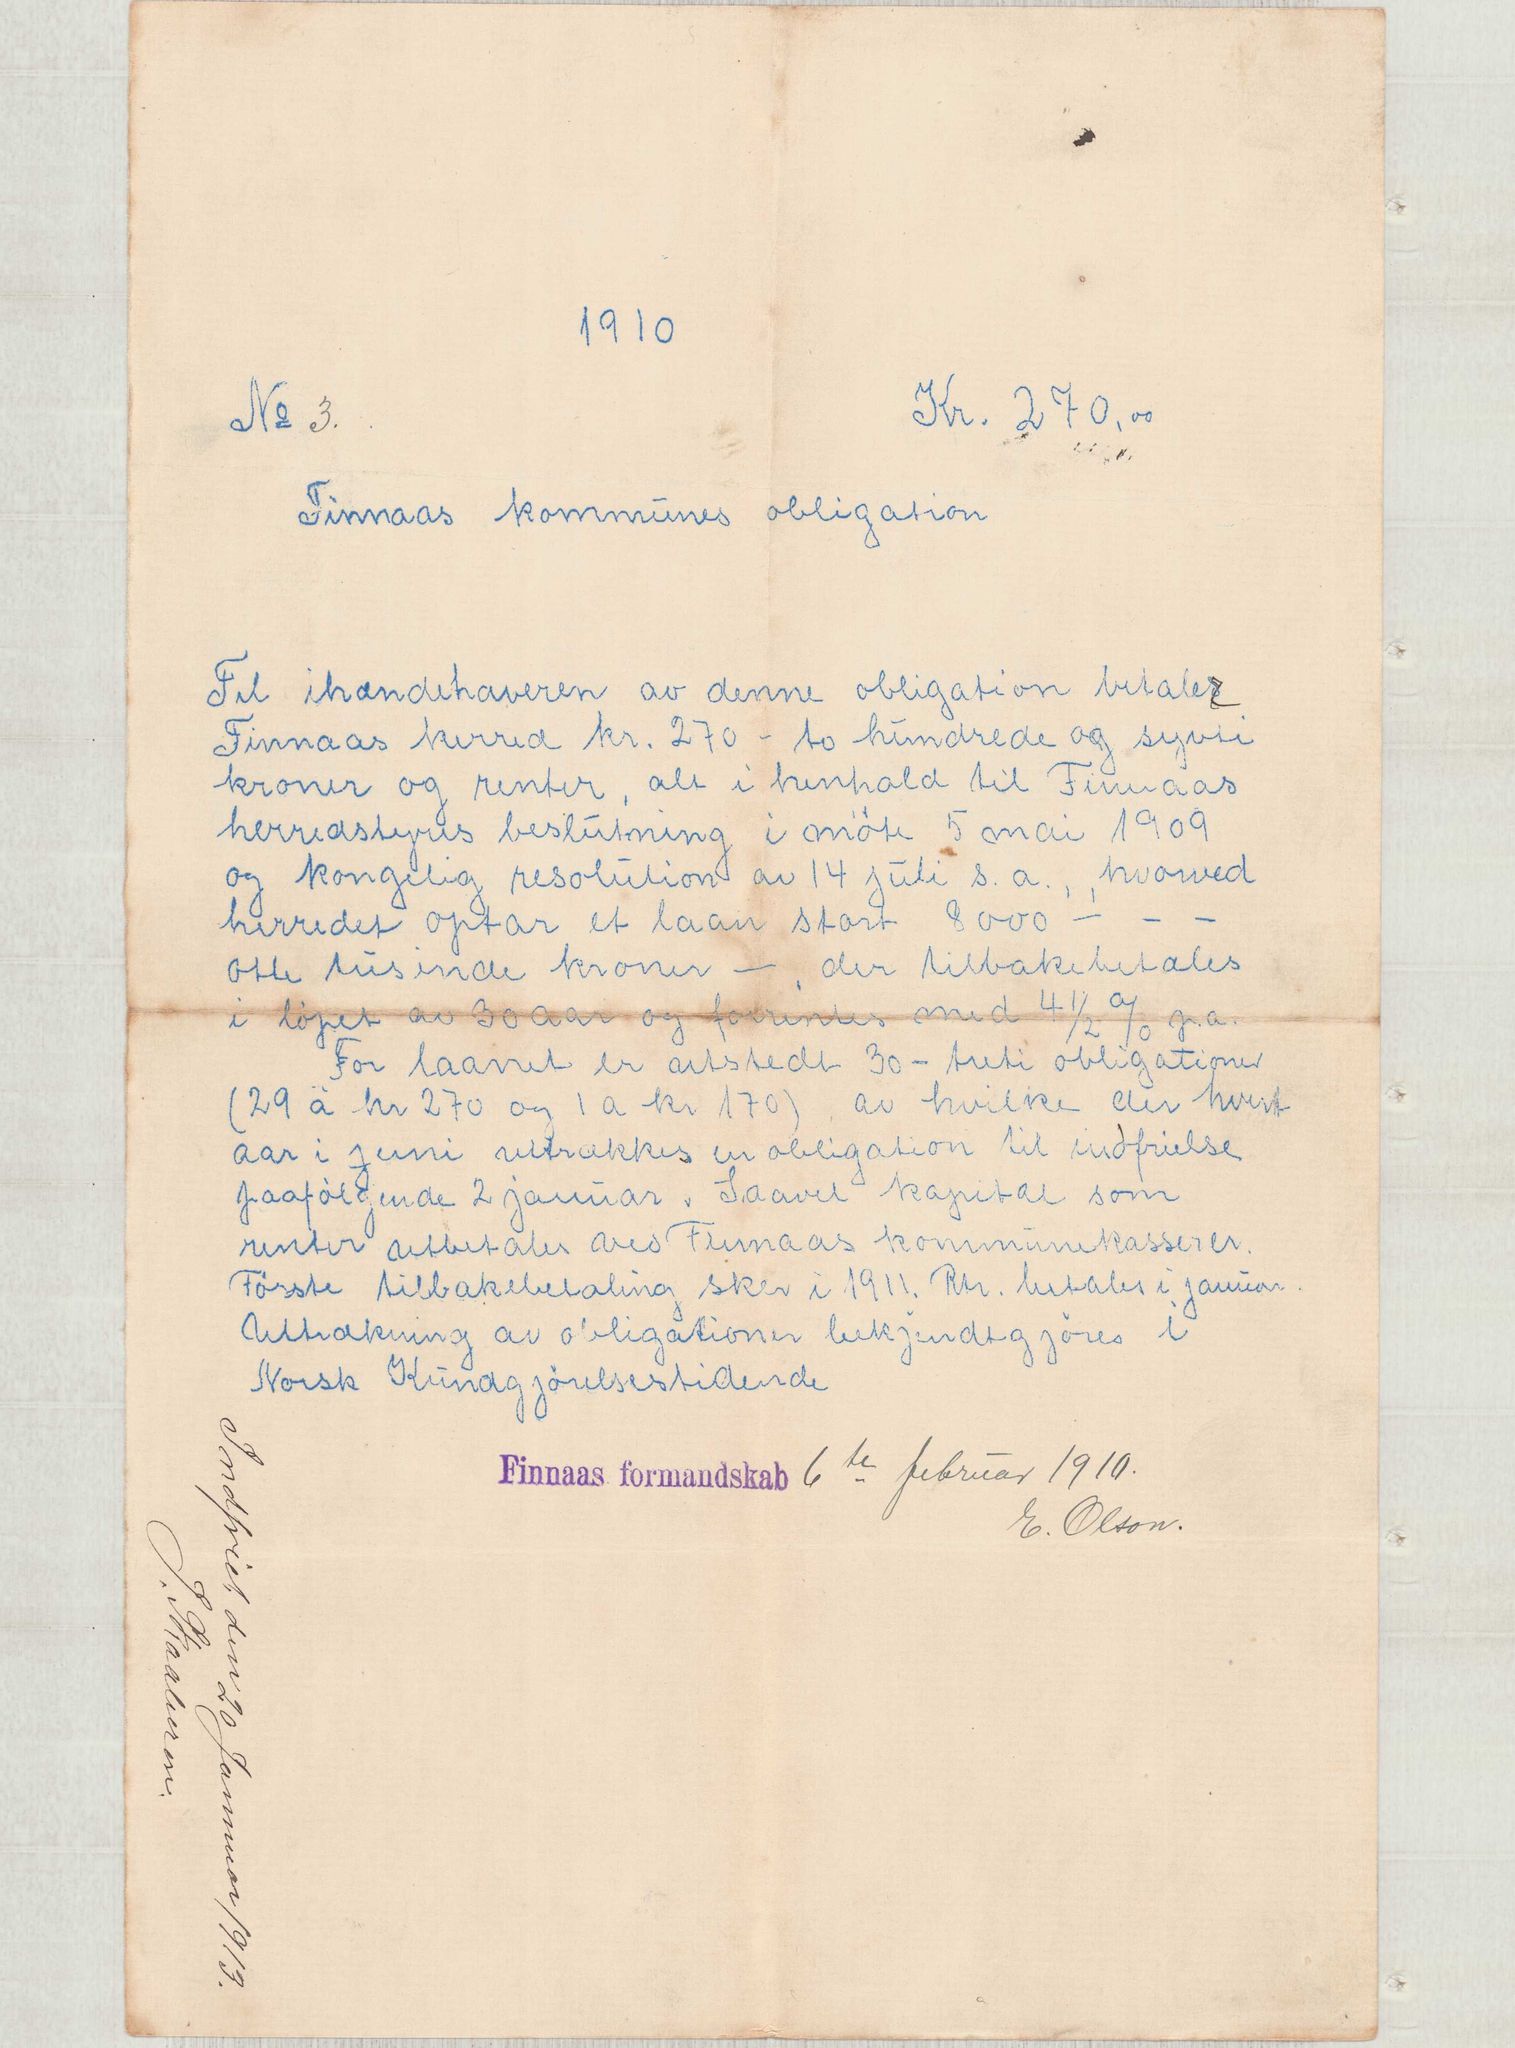 1910
No 3.
Kr. 270,00
Finnaas kommunes obligation
Til ihændehaveren av denne obligation betaler
Finnaas herred kr. 270 - to hundrede og sytti
kroner og renter, alt i henhold til Finnaas
herredstyres beslutning i möte 5 mai 1909
og kongelig resolution av 14 juli s. a., hvorved
herredet optar et laan stort 8000 - - -
otte tusinde kroner -, der tilbakebetales
i löpet av 30 aar og forrentes med 4 1/2 % p.a.
For laanet er utstedt 30 - treti obligationer
(29 à kr 270 og 1 a kr 170) av hvilke der hvert
aar i juni uttrækkes en obligation til indfrielse
paafölgende 2 januar. Saavel kapital som
renter utbetales ved Finnaas kommunekasserer.
Förste tilbakebetaling sker i 1911. Rtr. betales i januar.
Uttrækning av obligationer bekjendtgjöres i
Norsk Kundgjörelsestidende
Finnaas formandskab 6te februar 1910.
E. Olson.
Indfriet den 20 Januar 1913.